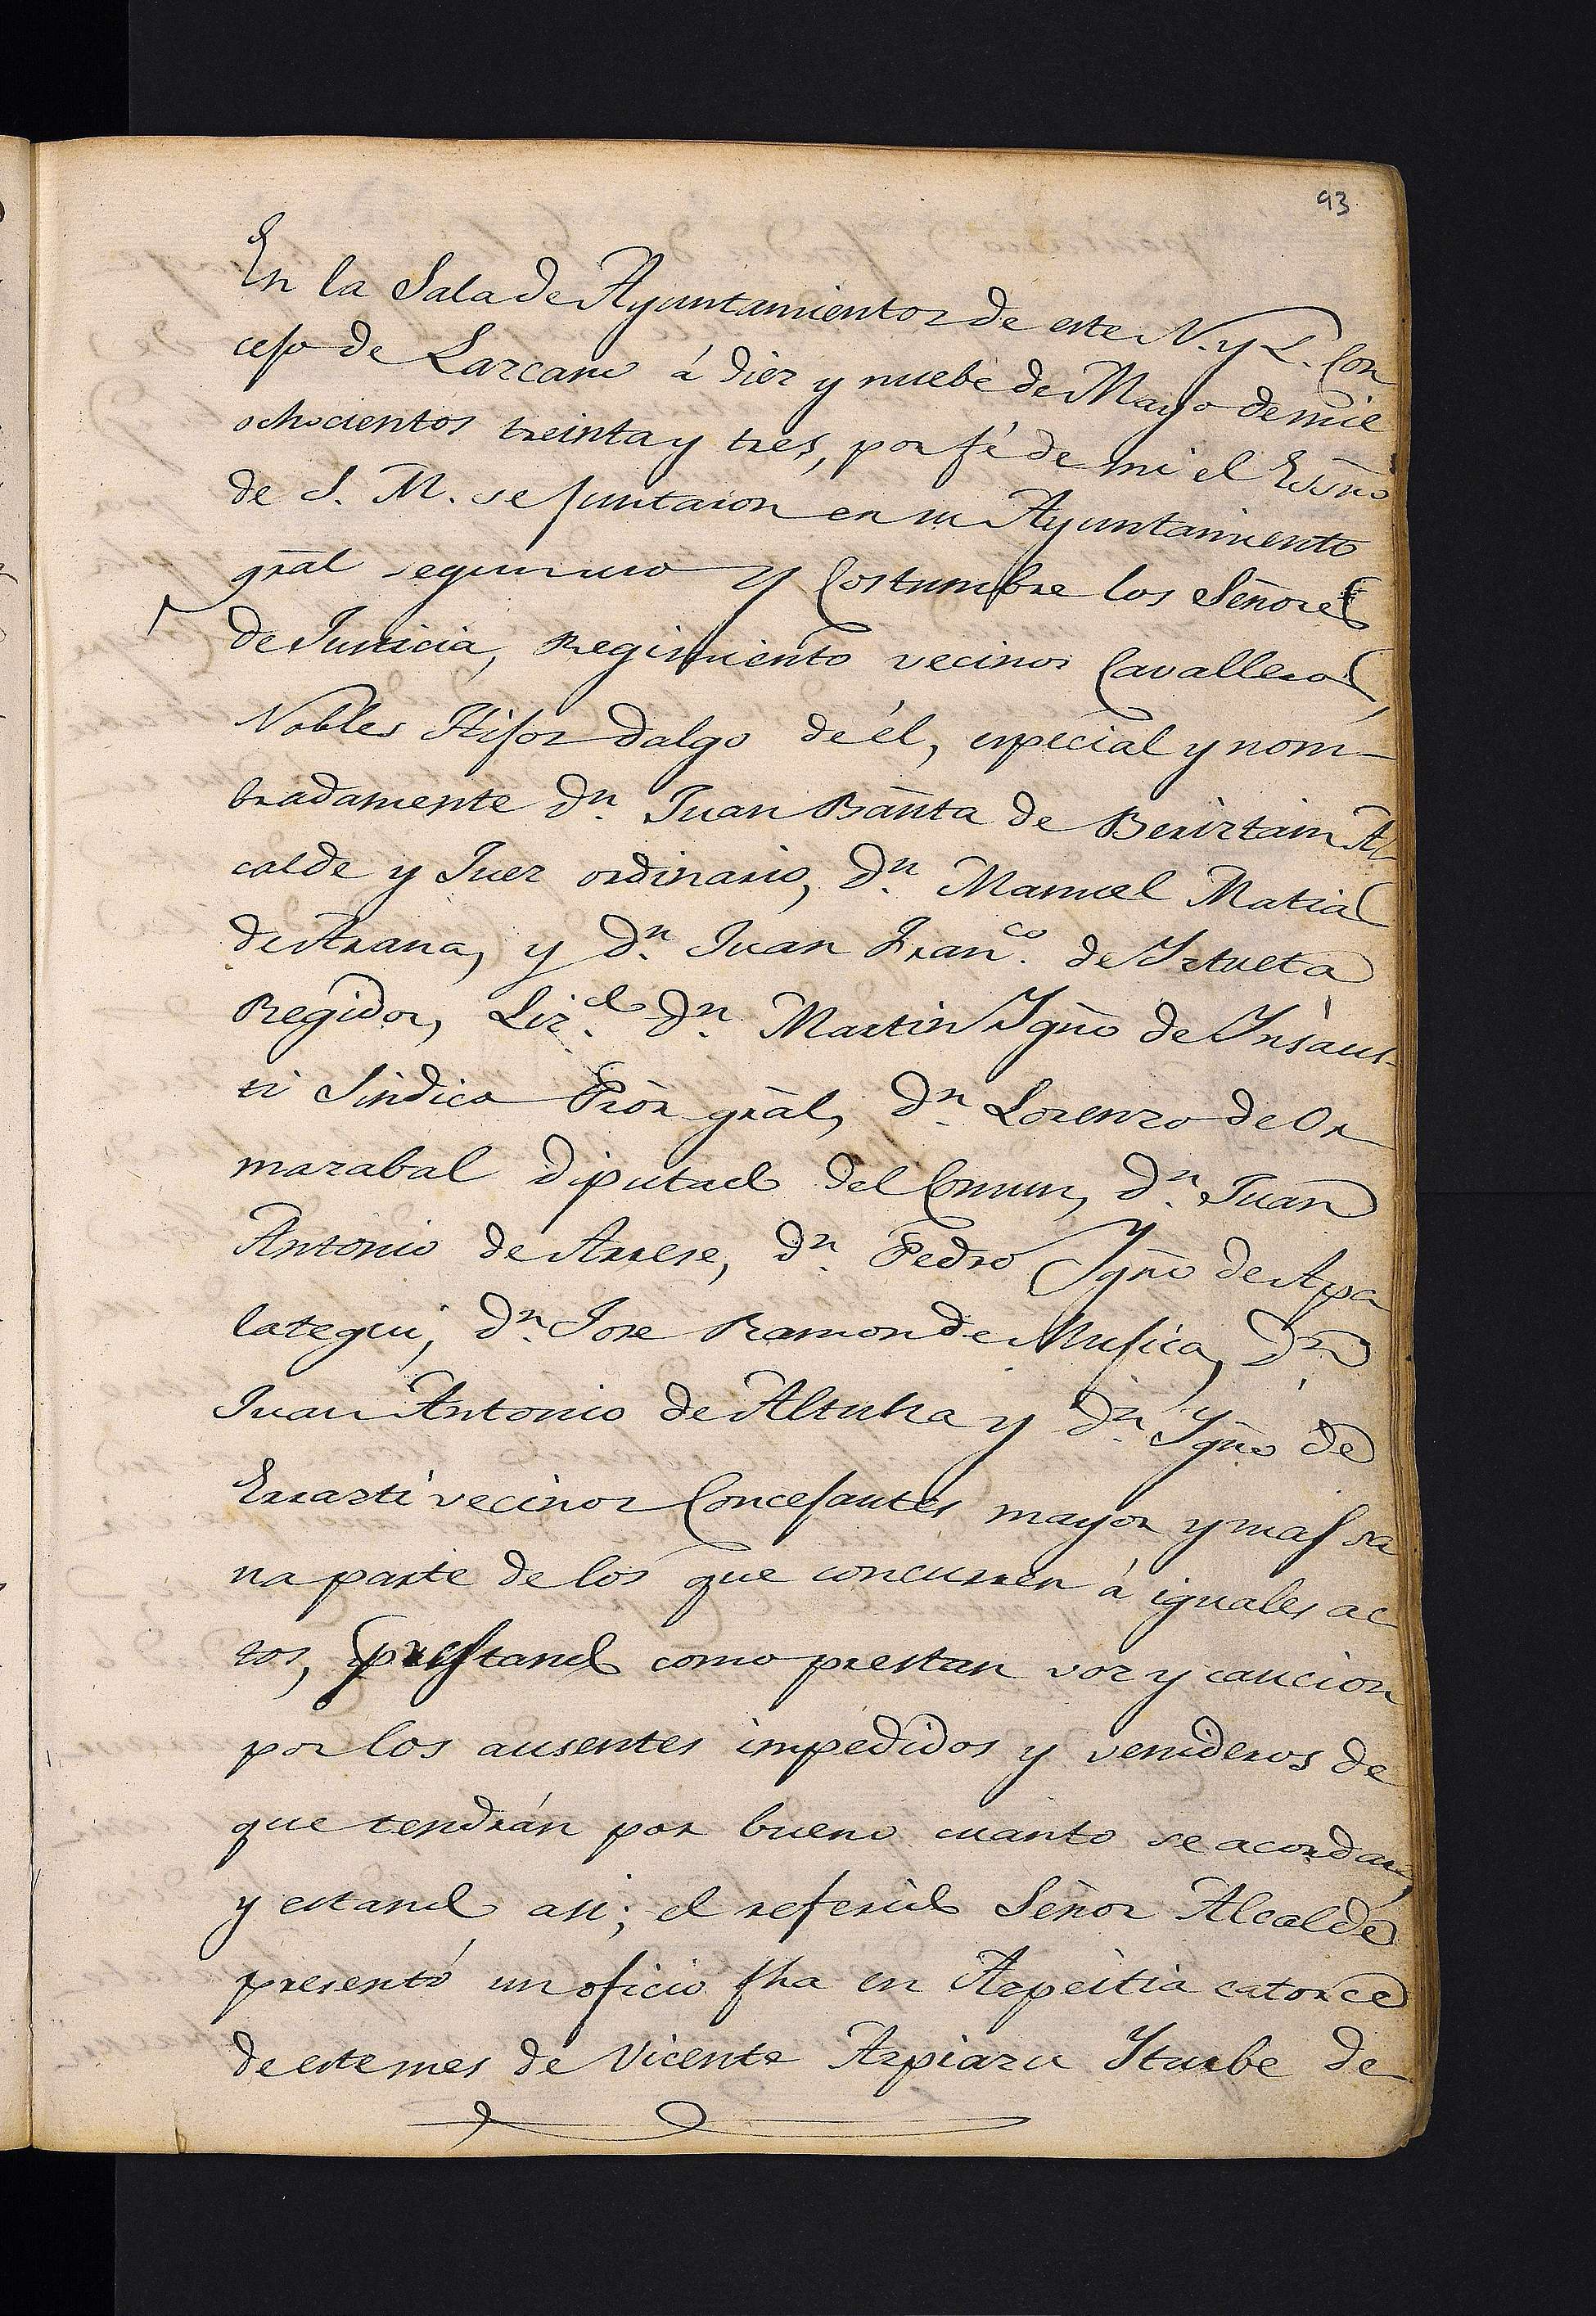 93
En la Sala de Ayuntamientos de este N. y L. Con
cejo de Lazcano á diez y nuebe de Mayo de mil
ochocientos treinta y tres, por fé de mi el Essno
de S. M. se juntaron en su Ayuntamiento
gral segun uso y Costumbre los Señores
de Justicia, Regimiento vecinos Cavalleros,
Nobles Hijos dalgo de él, especial y nom-
bradamente Dn. Juan Bauta de Beriztain Al-
calde y Juez ordinario, Dn. Manuel Matias
de Arana, y Dn. Juan Franco. de Iztueta
Regidor, Lizdo. Dn. Martin Ygno de Ynsaus-
ti Sindico Pror gral, Dn. Lorenzo de Or
mazabal Diputado del Comun, Dn. Juan
Antonio de Arrese, Dn. Pedro Ygno de Apa
lategui, Dn. Jose Ramon de Mujica, Dn.
Juan Antonio de Altuna y Dn. Ygno de
Errazti vecinos Concejantes mayor y mas sa
na parte de los que concurren á iguales ac
tos, prestando como prestan voz y caucion
por los ausentes impedidos y venideros de
que tendrán por bueno cuanto se acordare,
y estando asi; el referido Señor Alcalde
presentó un oficio fha en Azpeitia catorce
de este mes de Vicente Azpiazu Yturbe de